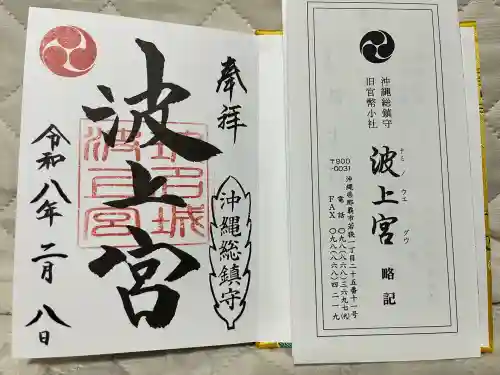 奉拝
沖縄総鎮守
波上宮
令和八年二月八日
沖縄総鎮守
旧官幣小社
波上宮 略記
ナミノウエグウ
〒900-0031
沖縄県那覇市若狭一丁目二十五番十一号
電話 〇九八(八六八)三六九七㈹
FAX 〇九八(八六八)四二一九